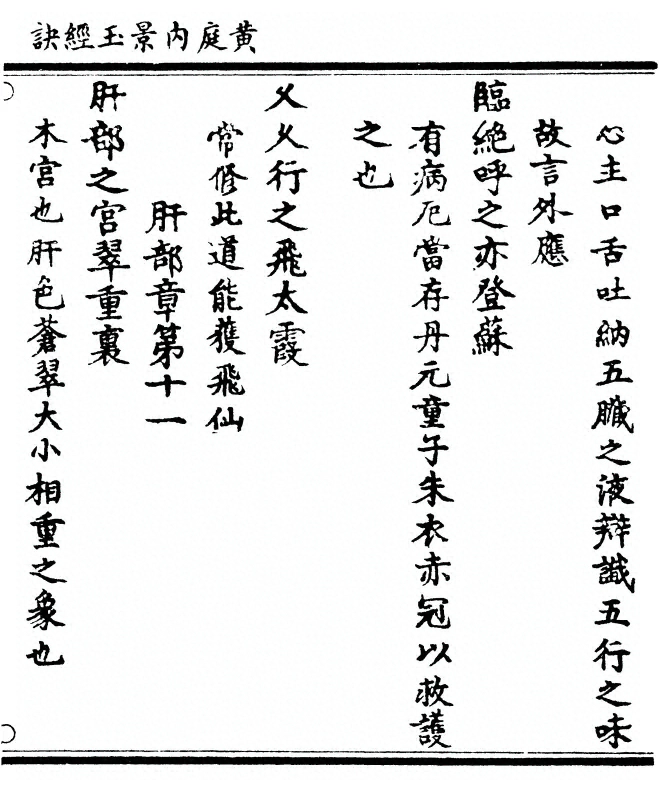 黃庭內景玉經訣
心主口舌吐納五臟之液辯識五行之味
故言外應
臨絕呼之亦登蘇
有病厄當存丹元童子朱衣赤冠以救護
之也
父父行之飛太霞
常修此道能獲飛仙
肝部章第十一
肝部之宮翠重裏
木宮也肝色蒼翠大小相重之象也